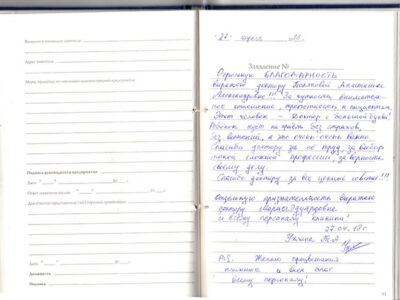 Фамилия и инициалы заявителя
Адрес заявителя
Меры, принятые по заявлению администрацией предприятия
Подпись руководителя предприятия
Дата
Ответ заявителю послан
Дата
Должность
Подпись
27 апреля 18
Заявление №
Огромную БЛАГОДАРНОСТЬ
выражаю доктору Анастасии
Александровне!!! За чуткость, внимательное
отношение, к пациентам.
Этот человек – Доктор с большой буквы!
Ребёнок идёт на приём без страхов,
без волнений, а это очень-очень важно.
Спасибо доктору за её труд, за выбор
такой сложной профессии, за верность
своему делу.
Спасибо доктору за все ценные советы!!!
Отдельную признательность выражаю
доктору Эдуардовне
и всему персоналу клиники!
27.04.18г.
P.S. Желаю процветания
клинике и всех благ
всему персоналу!